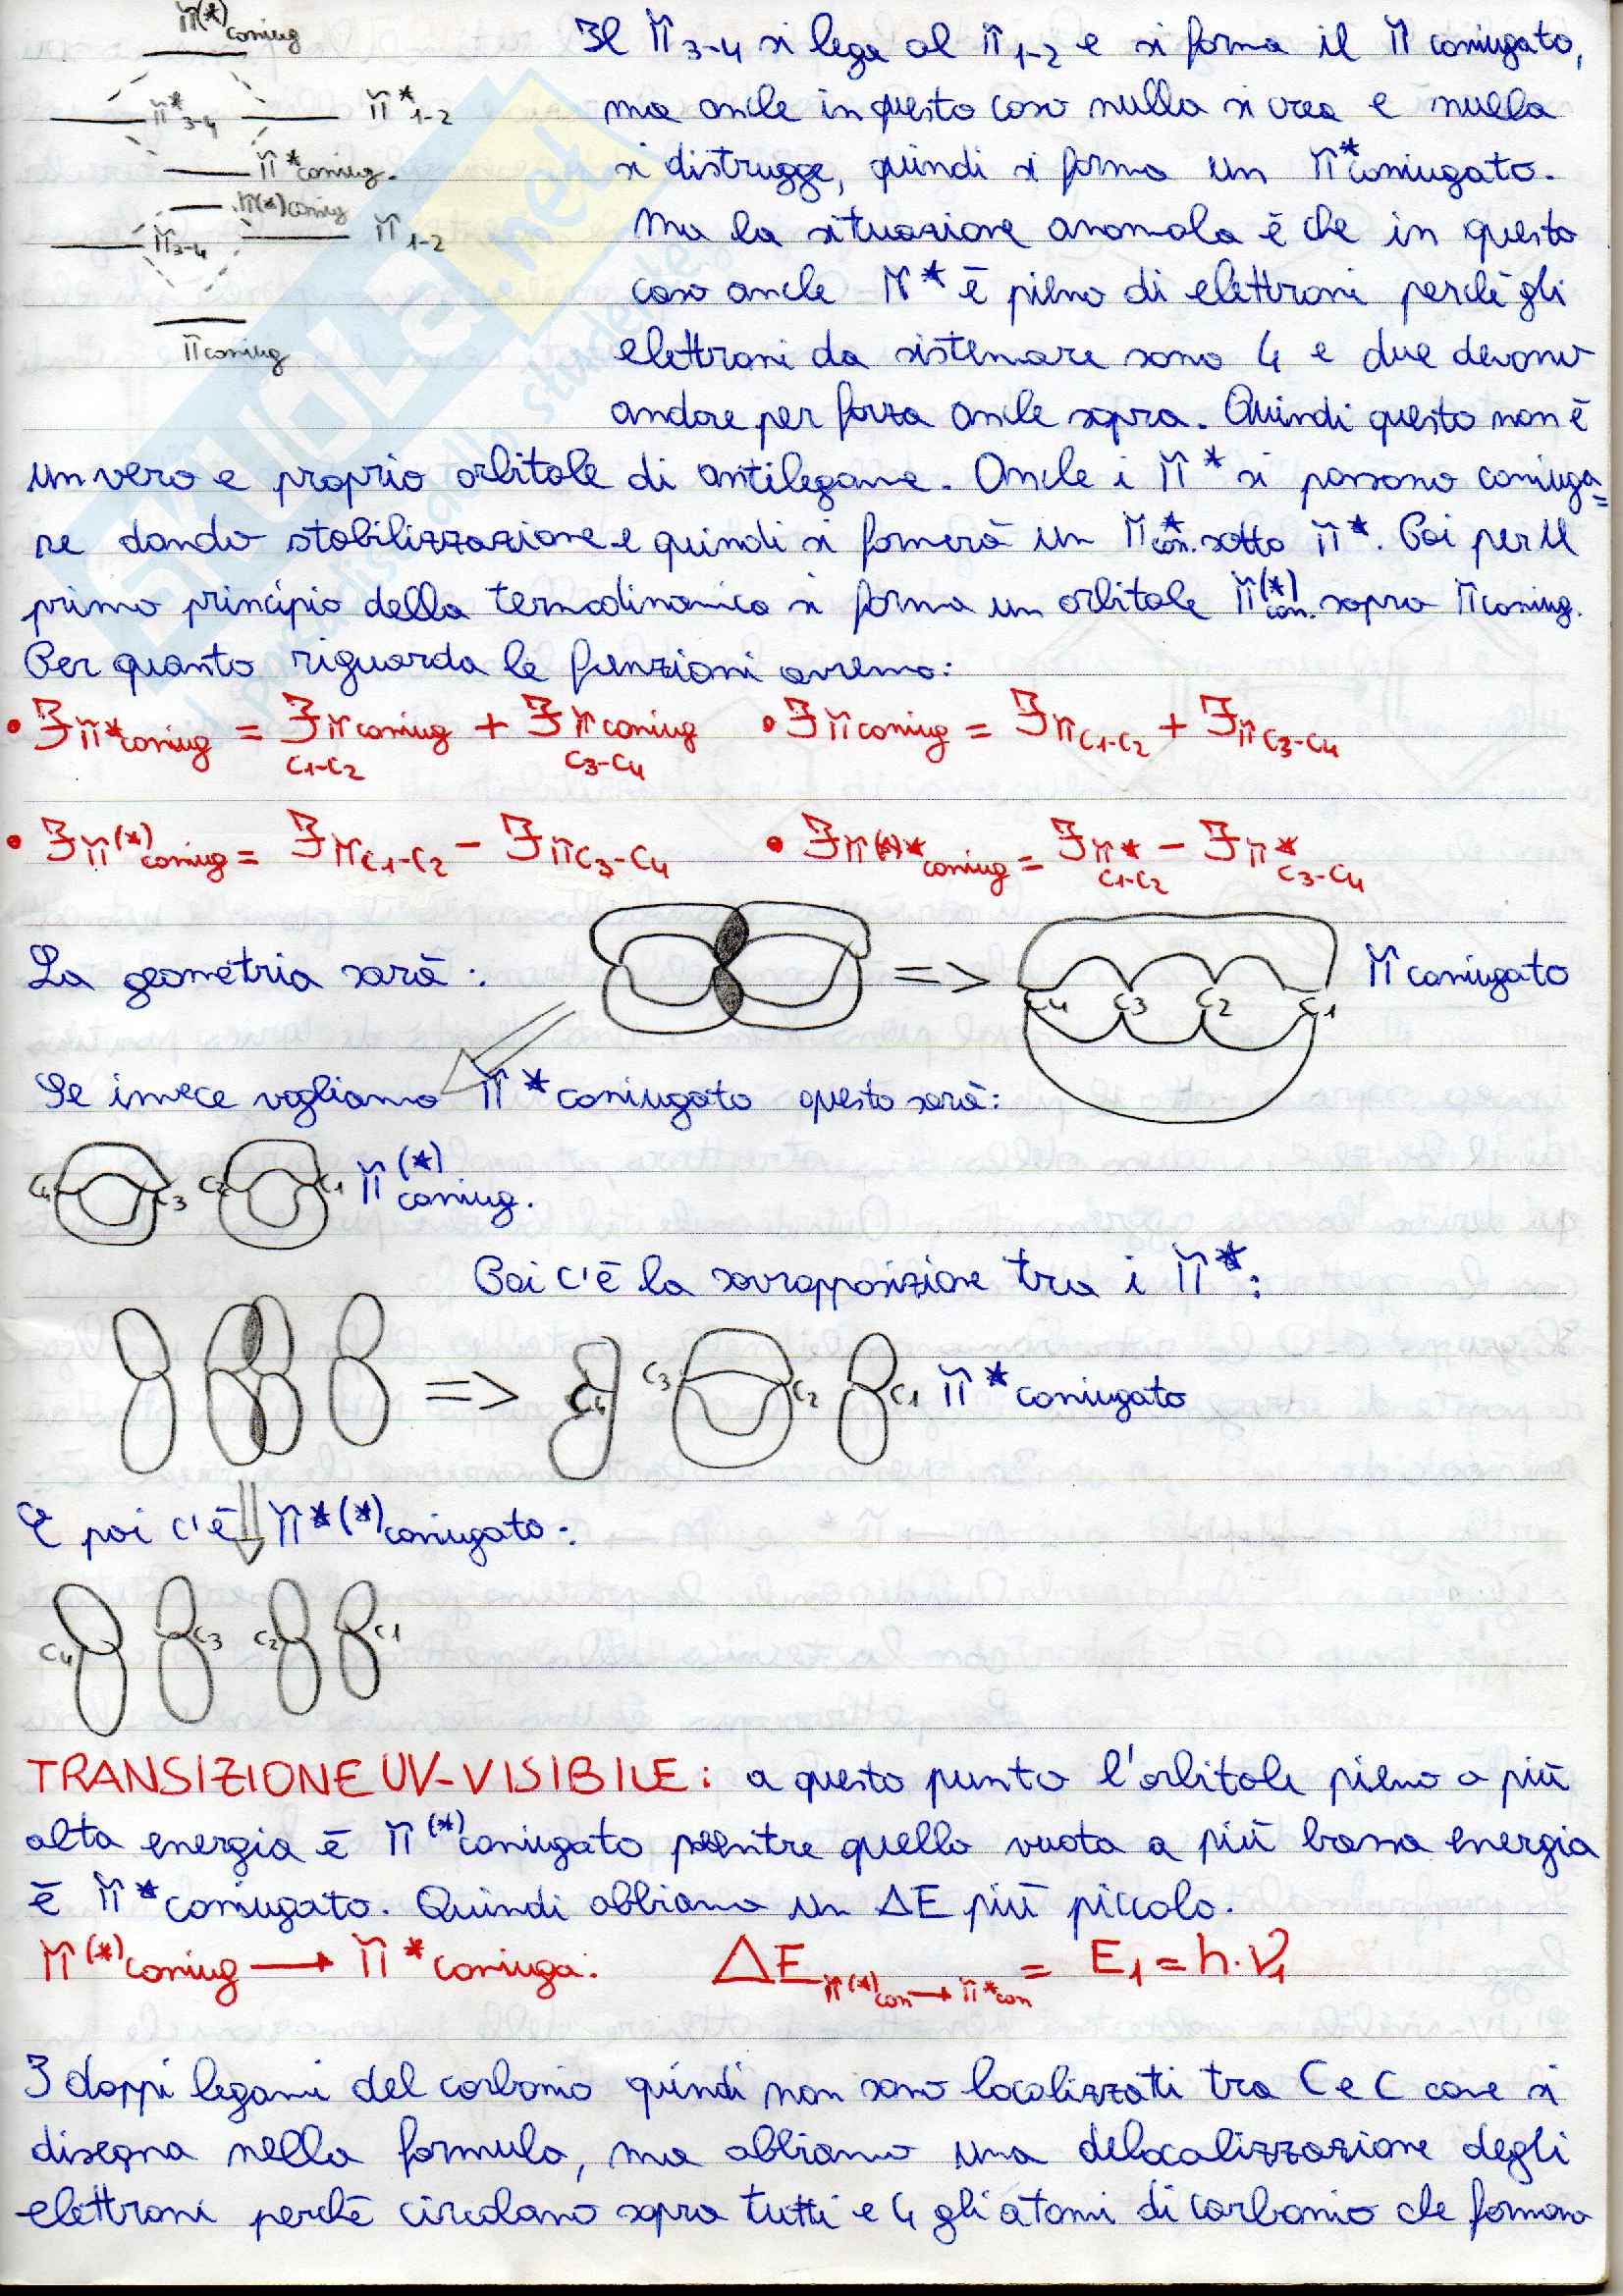 π(*) coniug
π*3-4 π*1-2
π* coniug.
π(*) coniug
π3-4 π1-2
π coniug
Il π3-4 si lega al π1-2 e si forma il π coniugato,
ma anche in questo caso nulla si crea e nulla
si distrugge, quindi si forma un π* coniugato.
Ma la situazione anomala è che in questo
caso anche π* è pieno di elettroni perchè gli
elettroni da sistemare sono 4 e due devono
andare per forza anche sopra. Quindi questo non è
un vero e proprio orbitale di antilegame. Anche i π* si possono coniuga=
re dando stabilizzazione e quindi si formerà un π*con. sotto π*. Poi per il
primo principio della termodinamica si forma un orbitale π(*)con. sopra π coniug.
Per quanto riguarda le funzioni avremo:
• Ƒπ*coniug = Ƒπ coniug C1-C2 + Ƒπ coniug C3-C4 • Ƒπ coniug = Ƒπ C1-C2 + Ƒπ C3-C4
• Ƒπ(*)coniug = Ƒπ C1-C2 - Ƒπ C3-C4 • Ƒπ(*)*coniug = Ƒπ* C1-C2 - Ƒπ* C3-C4
La geometria sarà: => C4 C3 C2 C1 π coniugato
Se invece vogliamo π* coniugato questo sarà:
C4 C3 C2 C1 π(*) coniug.
Poi c'è la sovrapposizione tra i π*:
=> C4 C3 C2 C1 π* coniugato
E poi c'è π*(*) coniugato:
C4 C3 C2 C1
TRANSIZIONE UV-VISIBILE: a questo punto l'orbitale pieno a più
alta energia è π(*) coniugato mentre quello vuoto a più bassa energia
è π* coniugato. Quindi abbiamo un ΔE più piccolo.
π(*) coniug → π* coniuga. ΔE π(*)con → π*con = E1 = h·ν1
I doppi legami del carbonio quindi non sono localizzati tra C e C come si
disegna nella formula, ma abbiamo una delocalizzazione degli
elettroni perchè circolano sopra tutti e 4 gli atomi di carbonio che formano
SKUOLA.net